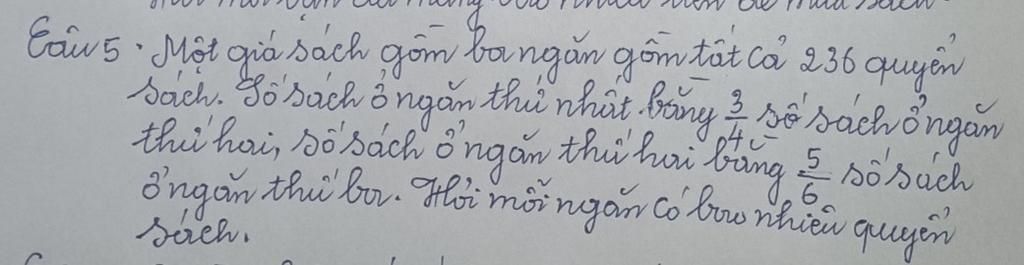 Câu 5. Một giá sách gồm ba ngăn gồm tất cả 236 quyển
sách. Số sách ở ngăn thứ nhất bằng 3/4 số sách ở ngăn
thứ hai, số sách ở ngăn thứ hai bằng 5/6 số sách
ở ngăn thứ ba. Hỏi mỗi ngăn có bao nhiêu quyển
sách.